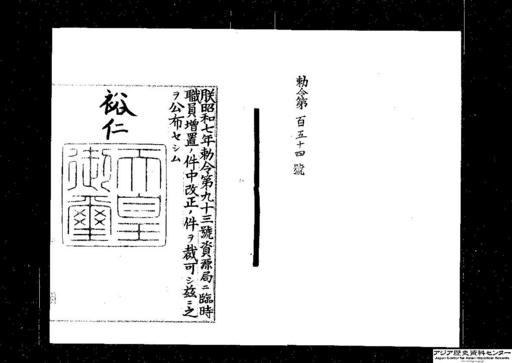 勅令第百五十四號
朕昭和七年勅令第九十三號資源局ニ臨時
職員增置ノ件中改正ノ件ヲ裁可シ茲ニ之
ヲ公布セシム
裕仁
天皇
御璽
アジア歴史資料センター
Japan Center for Asian Historical Records